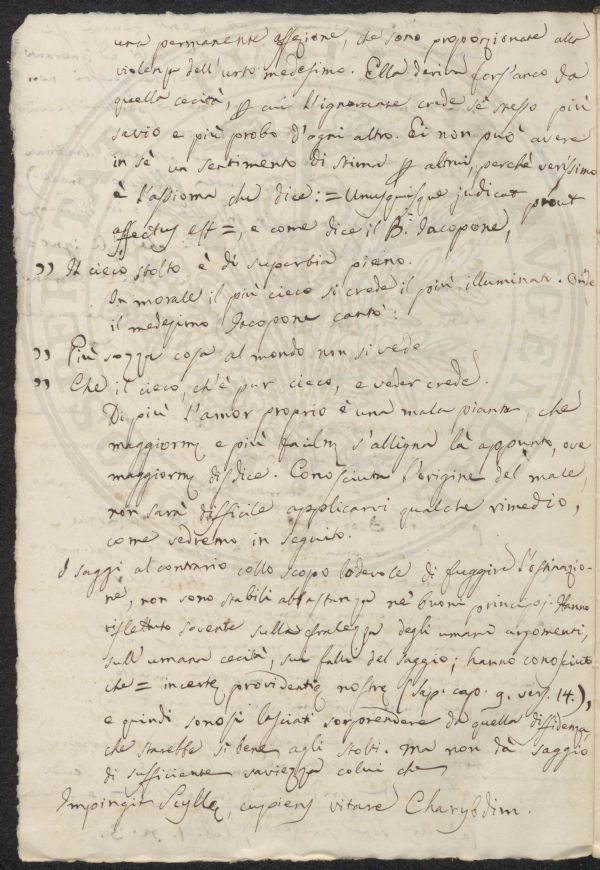 una permanente affezione, che sono proporzionate alla
violenza dell'urto medesimo. Ella deriva fors'anco da
quella cecità, p cui l'ignorante crede sè stesso più
savio e più probo d'ogni altro. Ei non può avere
in sè un sentimento di stima p altrui, perchè verissimo
è l'assioma che dice: = Unusquisque judicat prout
affectus est =, e come dice il B. Jacopone,
" Il cieco stolto è di superbia pieno.
In morale il più cieco si crede il più illuminato. Onde
il medesimo Jacopone cantò:
" Più sozza cosa al mondo non si vede
" Che il cieco, ch'è pur cieco, e veder crede.
Di più l'amor proprio è una mala pianta, che
maggiorm e più facilm s'alligna là appunto, ove
maggiorm disdice. Conosciuta l'origine del male,
non sarà difficile applicarvi qualche rimedio,
come vedremo in seguito.
I saggi al contrario collo scopo lodevole di fuggire l'ostinazio-
ne, non sono stabili abbastanza ne' buoni principj. Hanno
riflettuto sovente sulla fralezza degli umani argomenti,
sull'umana cecità, sui falli del saggio; hanno conosciuto
che = incertę providentię nostrę (Sap. cap. 9. vers. 14.),
e quindi sonosi lasciati sorprendere da quella diffidenza,
che starebbe sì bene agli stolti. Ma non dà saggio
di sufficiente saviezza colui che
Impingit Scyllę, cupiens vitare Charybdim.